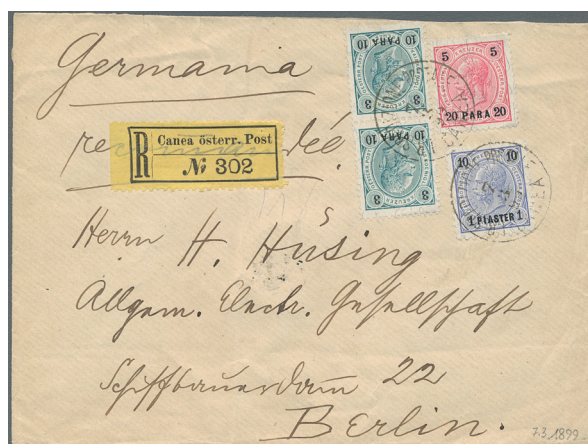 Germania
Canea österr. Post
R № 302
10 PARA 10
3 3
10 PARA 10
3 3
5 5
20 PARA 20
10 10
1 PIASTER 1
Herrn H. Hüsing
Allgem. Electr. Gesellschaft
Schiffbauerdam 22
Berlin.
7.3.1899